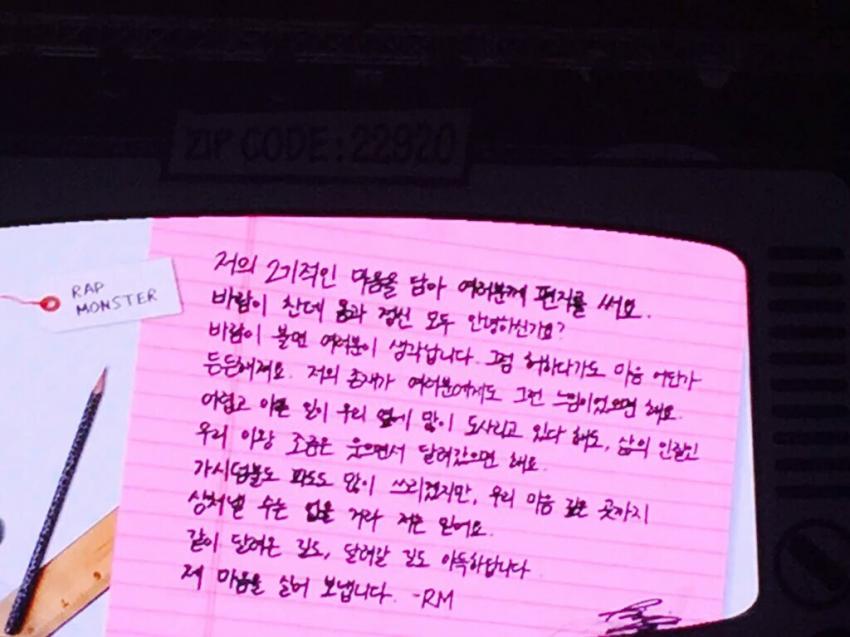 ZIP CODE: 22920
RAP
MONSTER
저의 2기적인 마음을 담아 여러분께 편지를 써요.
바람이 찬데 몸과 정신 모두 안녕하신가요?
바람이 불면 여러분이 생각납니다. 그럼 허하다가도 마음 어딘가
든든해져요. 저의 존재가 여러분에게도 그런 느낌이었으면 해요.
어렵고 아픈 일이 우리 옆에 많이 도사리고 있다 해도, 삶의 인질인
우리 이왕 조금은 웃으면서 달려갔으면 해요.
가시덤불도 파도도 많이 쓰리겠지만, 우리 마음 깊은 곳까지
상처낼 수는 없을 거라 저는 믿어요.
같이 달려온 길도, 달려갈 길도 아득하답니다
제 마음을 실어 보냅니다. -RM